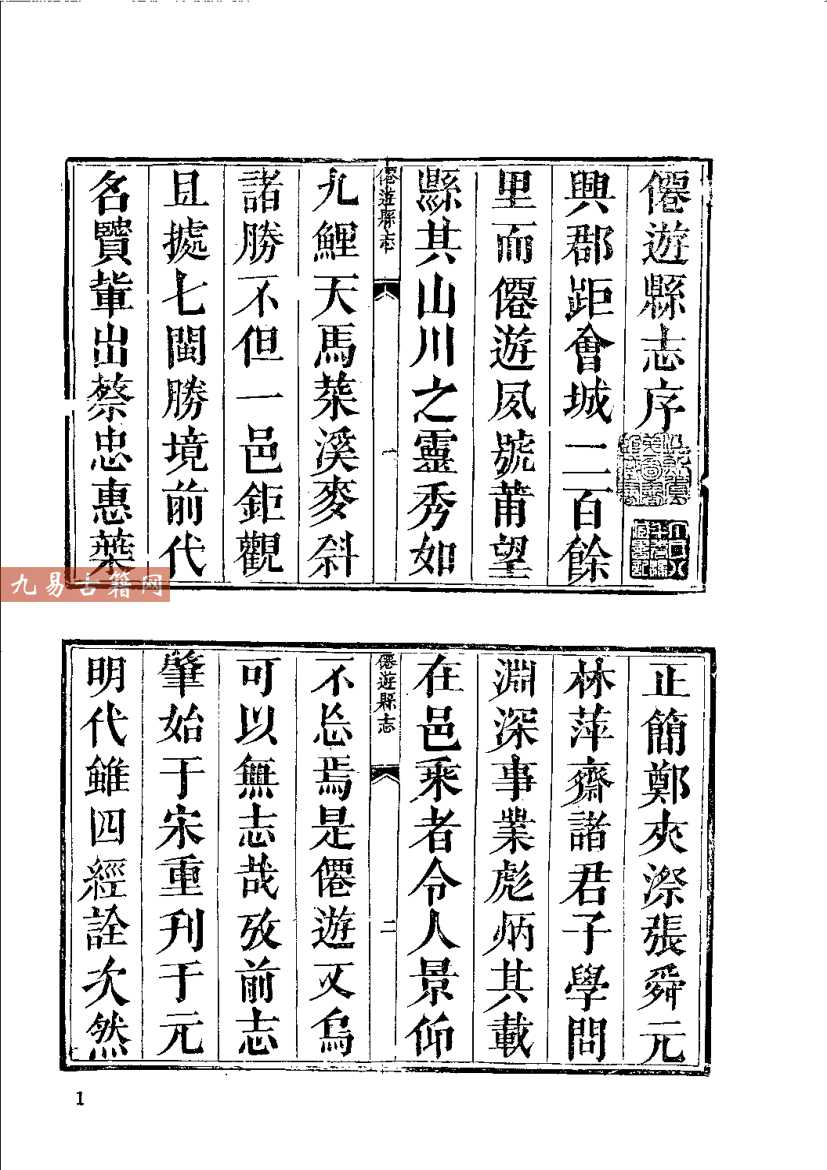 僊遊縣志序
興郡距會城二百餘
里而僊遊夙號莆望
縣其山川之靈秀如
僊遊縣志
一
九鯉天馬菜溪麥斜
諸勝不但一邑鉅觀
且㨿七閩勝境前代
名賢輩出蔡忠惠葉
九易古籍网
正簡鄭夾漈張舜元
林萍齋諸君子學問
淵深事業彪炳其載
在邑乘者令人景仰
僊遊縣志
二
不忘焉是僊遊又烏
可以無志哉攷前志
肇始于宋重刋于元
明代雖四經詮次然
1